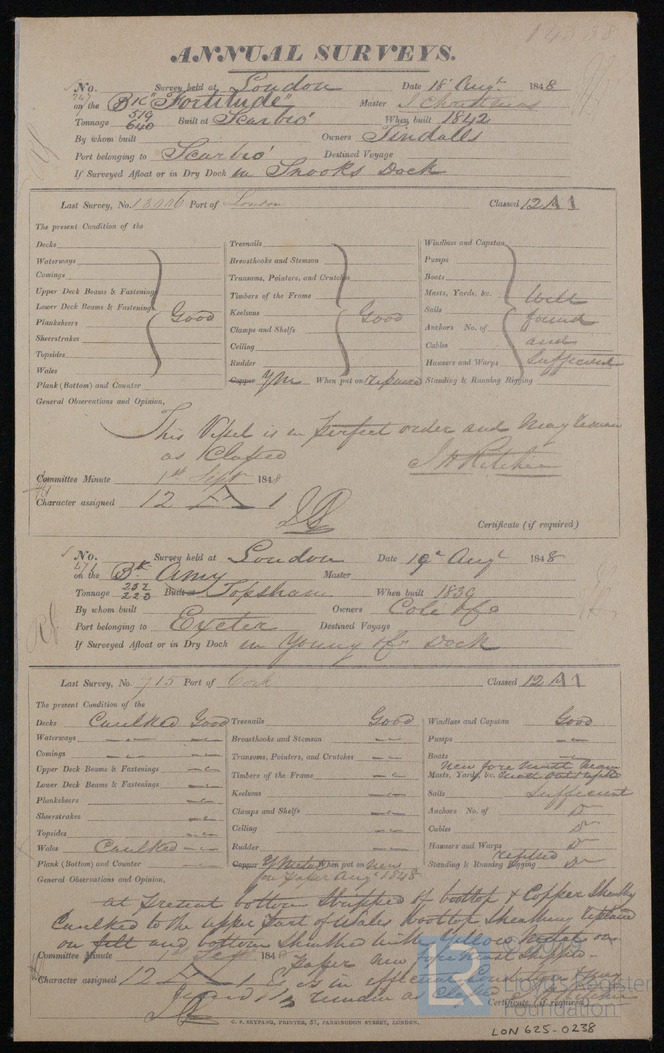 14338
ANNUAL SURVEYS.
No. Survey held at London Date 18 Augt 1848
on the Bk "Fortitude" Master J Christmas
Tonnage 519 640 Built at Scarbro' When built 1842
By whom built Owners Tindalls
Port belonging to Scarbro' Destined Voyage
If Surveyed Afloat or in Dry Dock in Snooks Dock
Last Survey, No. Port of London Classed 12 A1
The present Condition of the
Decks Treenails Windlass and Capstan
Waterways Breasthooks and Stemson Pumps
Comings Transoms, Pointers, and Crutches Boats
Upper Deck Beams & Fastenings Timbers of the Frame Masts, Yards, &c. Well
Lower Deck Beams & Fastenings Good Keelson Good Sails found
Planksheers Clamps and Shelfs Anchors No. of and
Sheerstrakes Ceiling Cables Sufficient
Topsides Rudder Hawsers and Warps
Wales Copper YM When put on repaired Standing & Running Rigging
Plank (Bottom) and Counter
General Observations and Opinion,
This Vessel is in perfect order and may remain
as Classed
J H Ritchie
Committee Minute 1st Sept 1848
Character assigned 12 A 1
Certificate (if required)
No. Survey held at London Date 19 Augt 1848
on the Bk Amy Master
Tonnage 252 223 Built at Topsham When built 1839
By whom built Owners Cole & Co
Port belonging to Exeter Destined Voyage
If Surveyed Afloat or in Dry Dock in Young & Co Dock
Last Survey, No. 715 Port of Cork Classed 12 A1
The present Condition of the
Decks Caulked Good Treenails Good Windlass and Capstan Good
Waterways Breasthooks and Stemson Pumps
Comings Transoms, Pointers, and Crutches Boats
Upper Deck Beams & Fastenings Timbers of the Frame Masts, Yards, &c. New fore mast
Lower Deck Beams & Fastenings Keelsons Sails Sufficient
Planksheers Clamps and Shelfs Anchors No. of Do
Sheerstrakes Ceiling Cables Do
Topsides Rudder Hawsers and Warps Do
Wales Caulked Copper Y Metal When put on new Standing & Running Rigging refitted Do
Plank (Bottom) and Counter on paper Augt 1848
General Observations and Opinion,
at present bottom stripped of boottop & Copper Sheathg
Caulked to the upper part of Wales boottop Sheathing replaced
on felt and bottom Sheathed with Yellow Metal on
Committee Minute 1st Sept 1848 paper new fore mast shipped
Character assigned 12 A 1 is in efficient Condition & may
remain as Classed Certificate (if required)
C. F. SEYFANG, PRINTER, 57, FARRINGDON STREET, LONDON.
LR Lloyd's Register Foundation
LON 625-0238